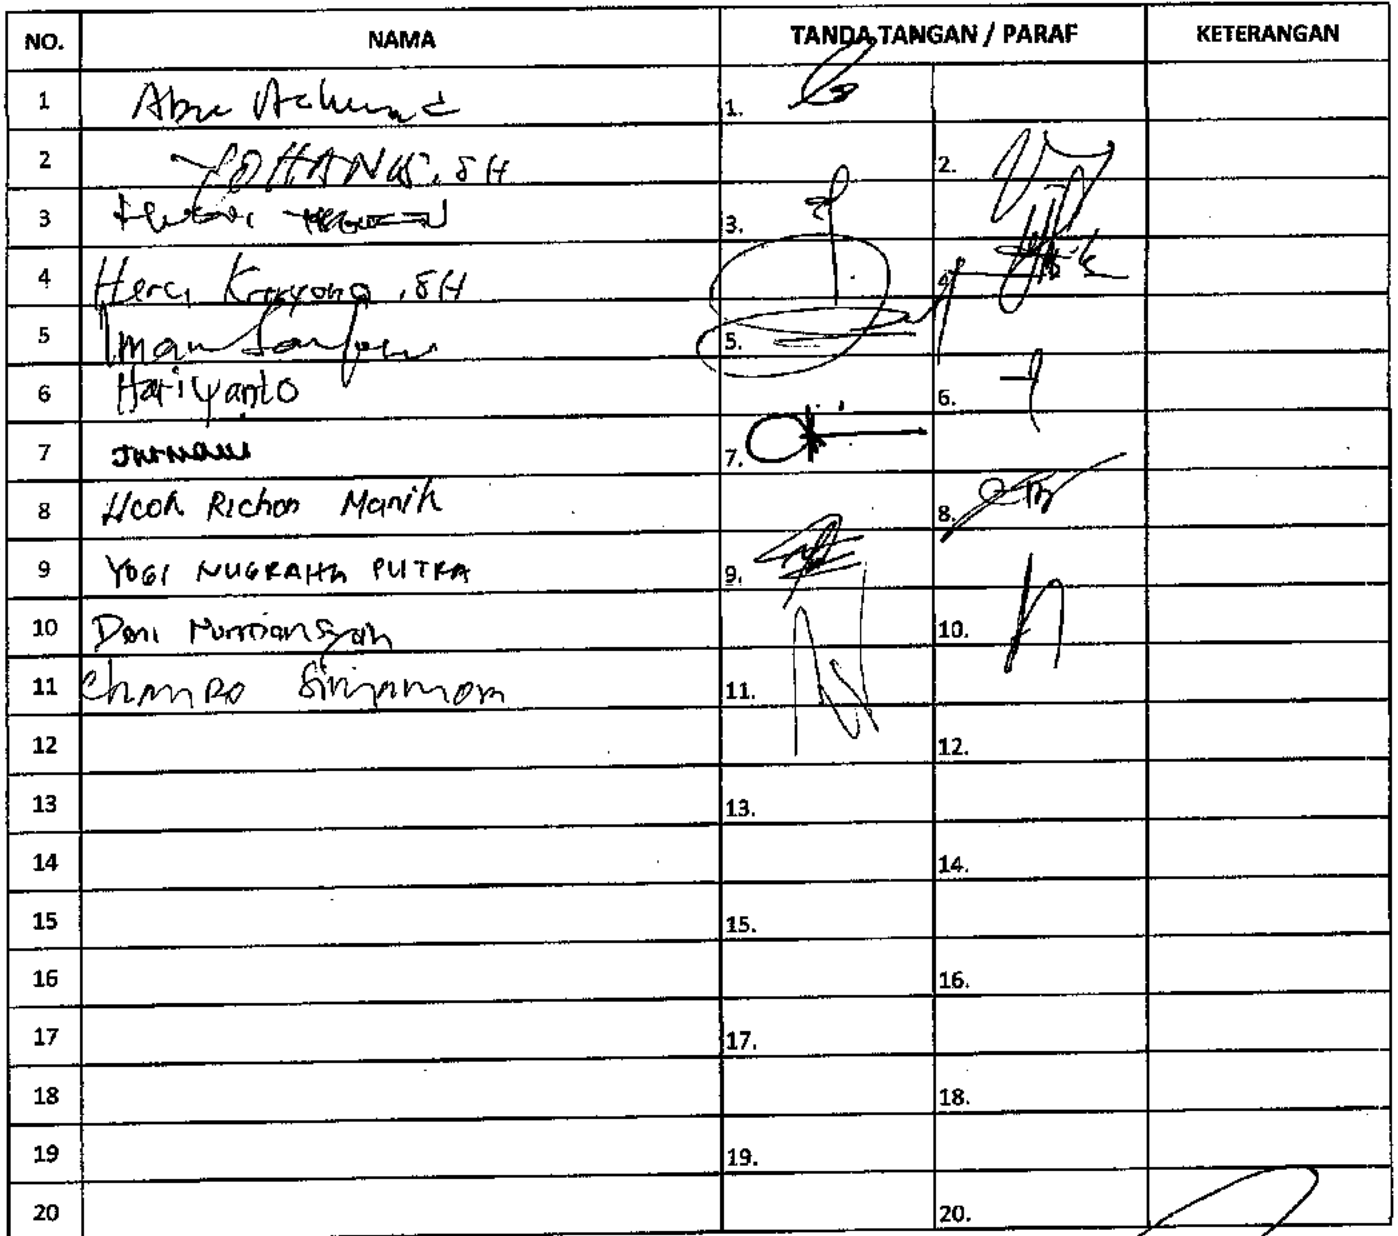 NO. NAMA TANDA TANGAN / PARAF KETERANGAN
1 Abu Achmad 1.
2 YOHANUS, SH 2.
3 3.
4 Heru Karyono, SH 4.
5 Imam 5.
6 Hariyanto 6.
7 7.
8 Ucok Richon Manik 8.
9 YOGI NUGRAHA PUTRA 9.
10 Doni Nurdiansyah 10.
11 11.
12 12.
13 13.
14 14.
15 15.
16 16.
17 17.
18 18.
19 19.
20 20.